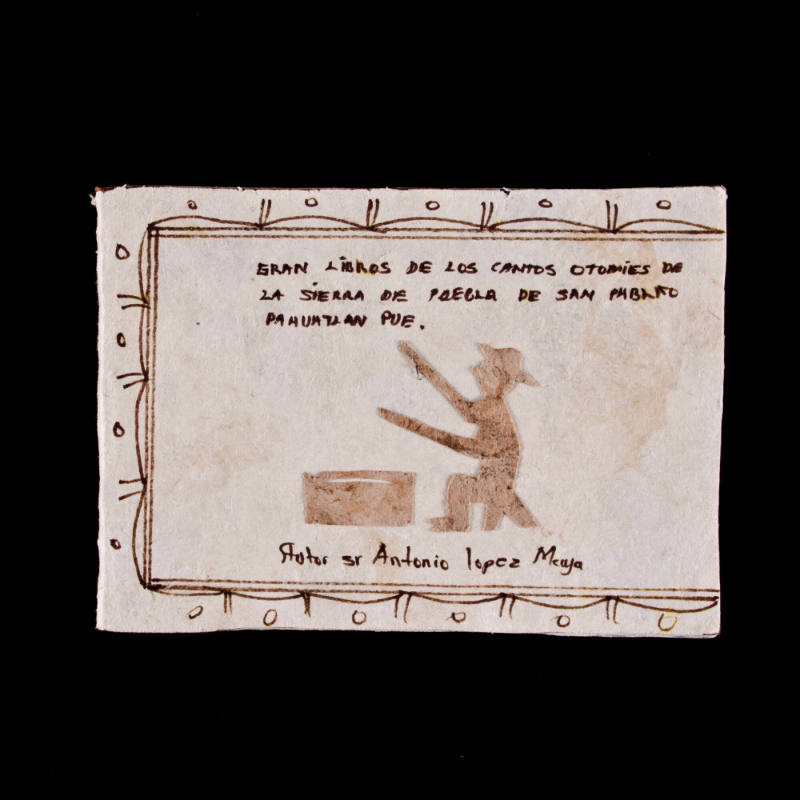 GRAN LIBROS DE LOS CANTOS OTOMIES DE
LA SIERRA DE PUEBLA DE SAN PABLITO
PAHUATLAN PUE.
Autor sr Antonio lopez